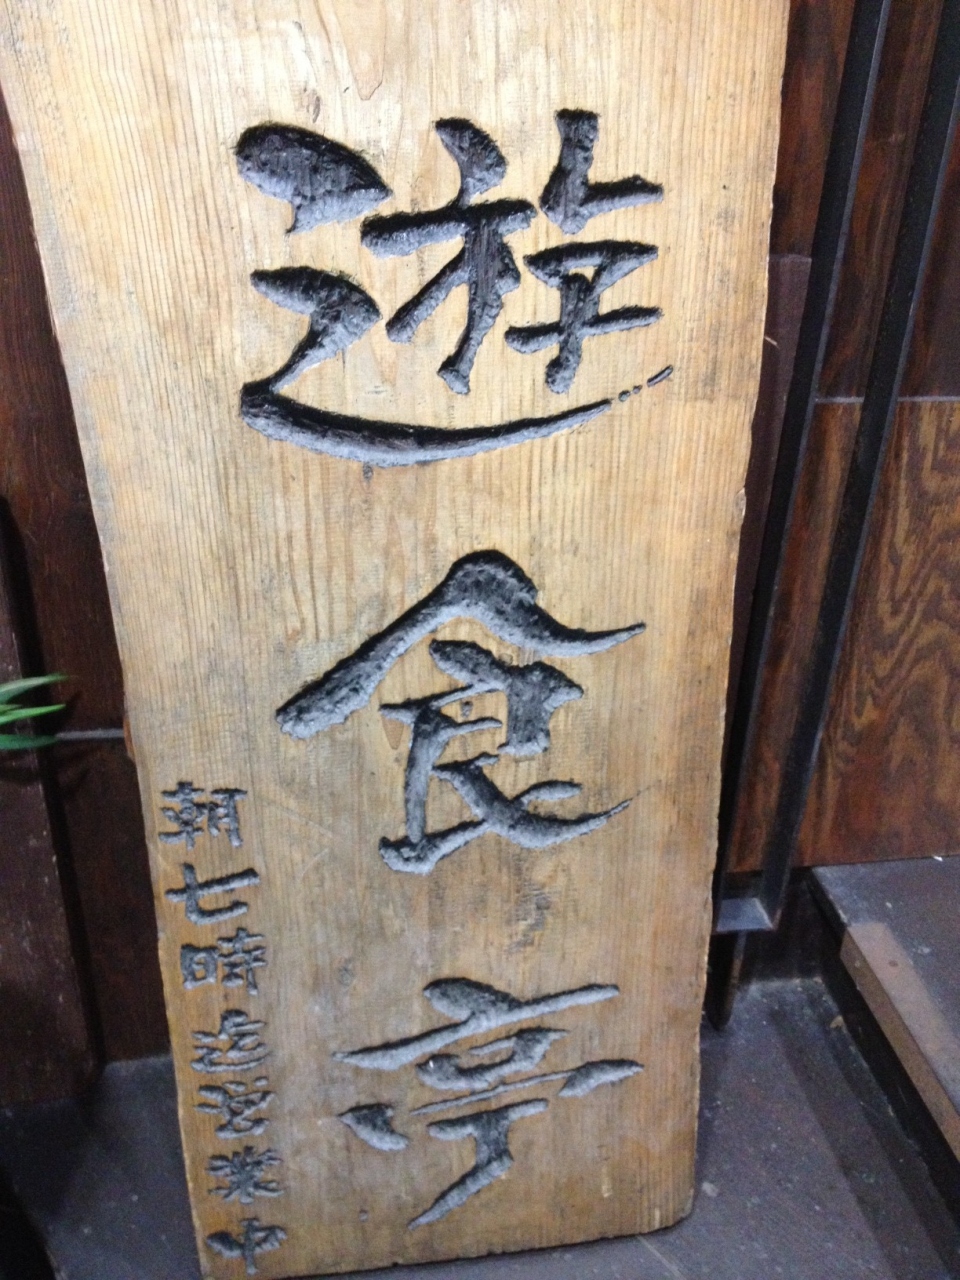 遊食亭
朝七時迄営業中